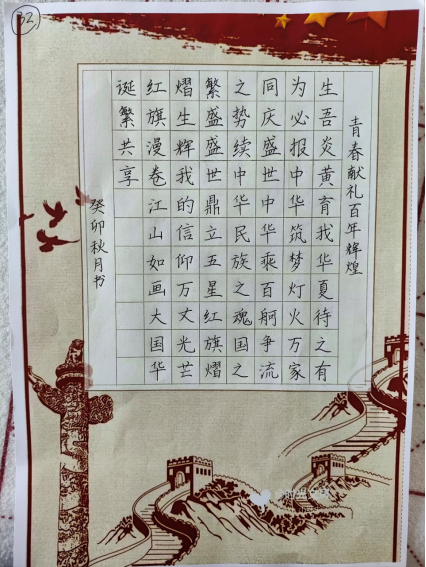 32
青春献礼百年辉煌
生吾炎黄育我华夏待之有
为必报中华筑梦灯火万家
同庆盛世中华乘百舸争流
之势续中华民族之魂国之
繁盛盛世鼎立五星红旗熠
熠生辉我的信仰万丈光芒
红旗漫卷江山如画大国华
诞繁共享
癸卯秋月书